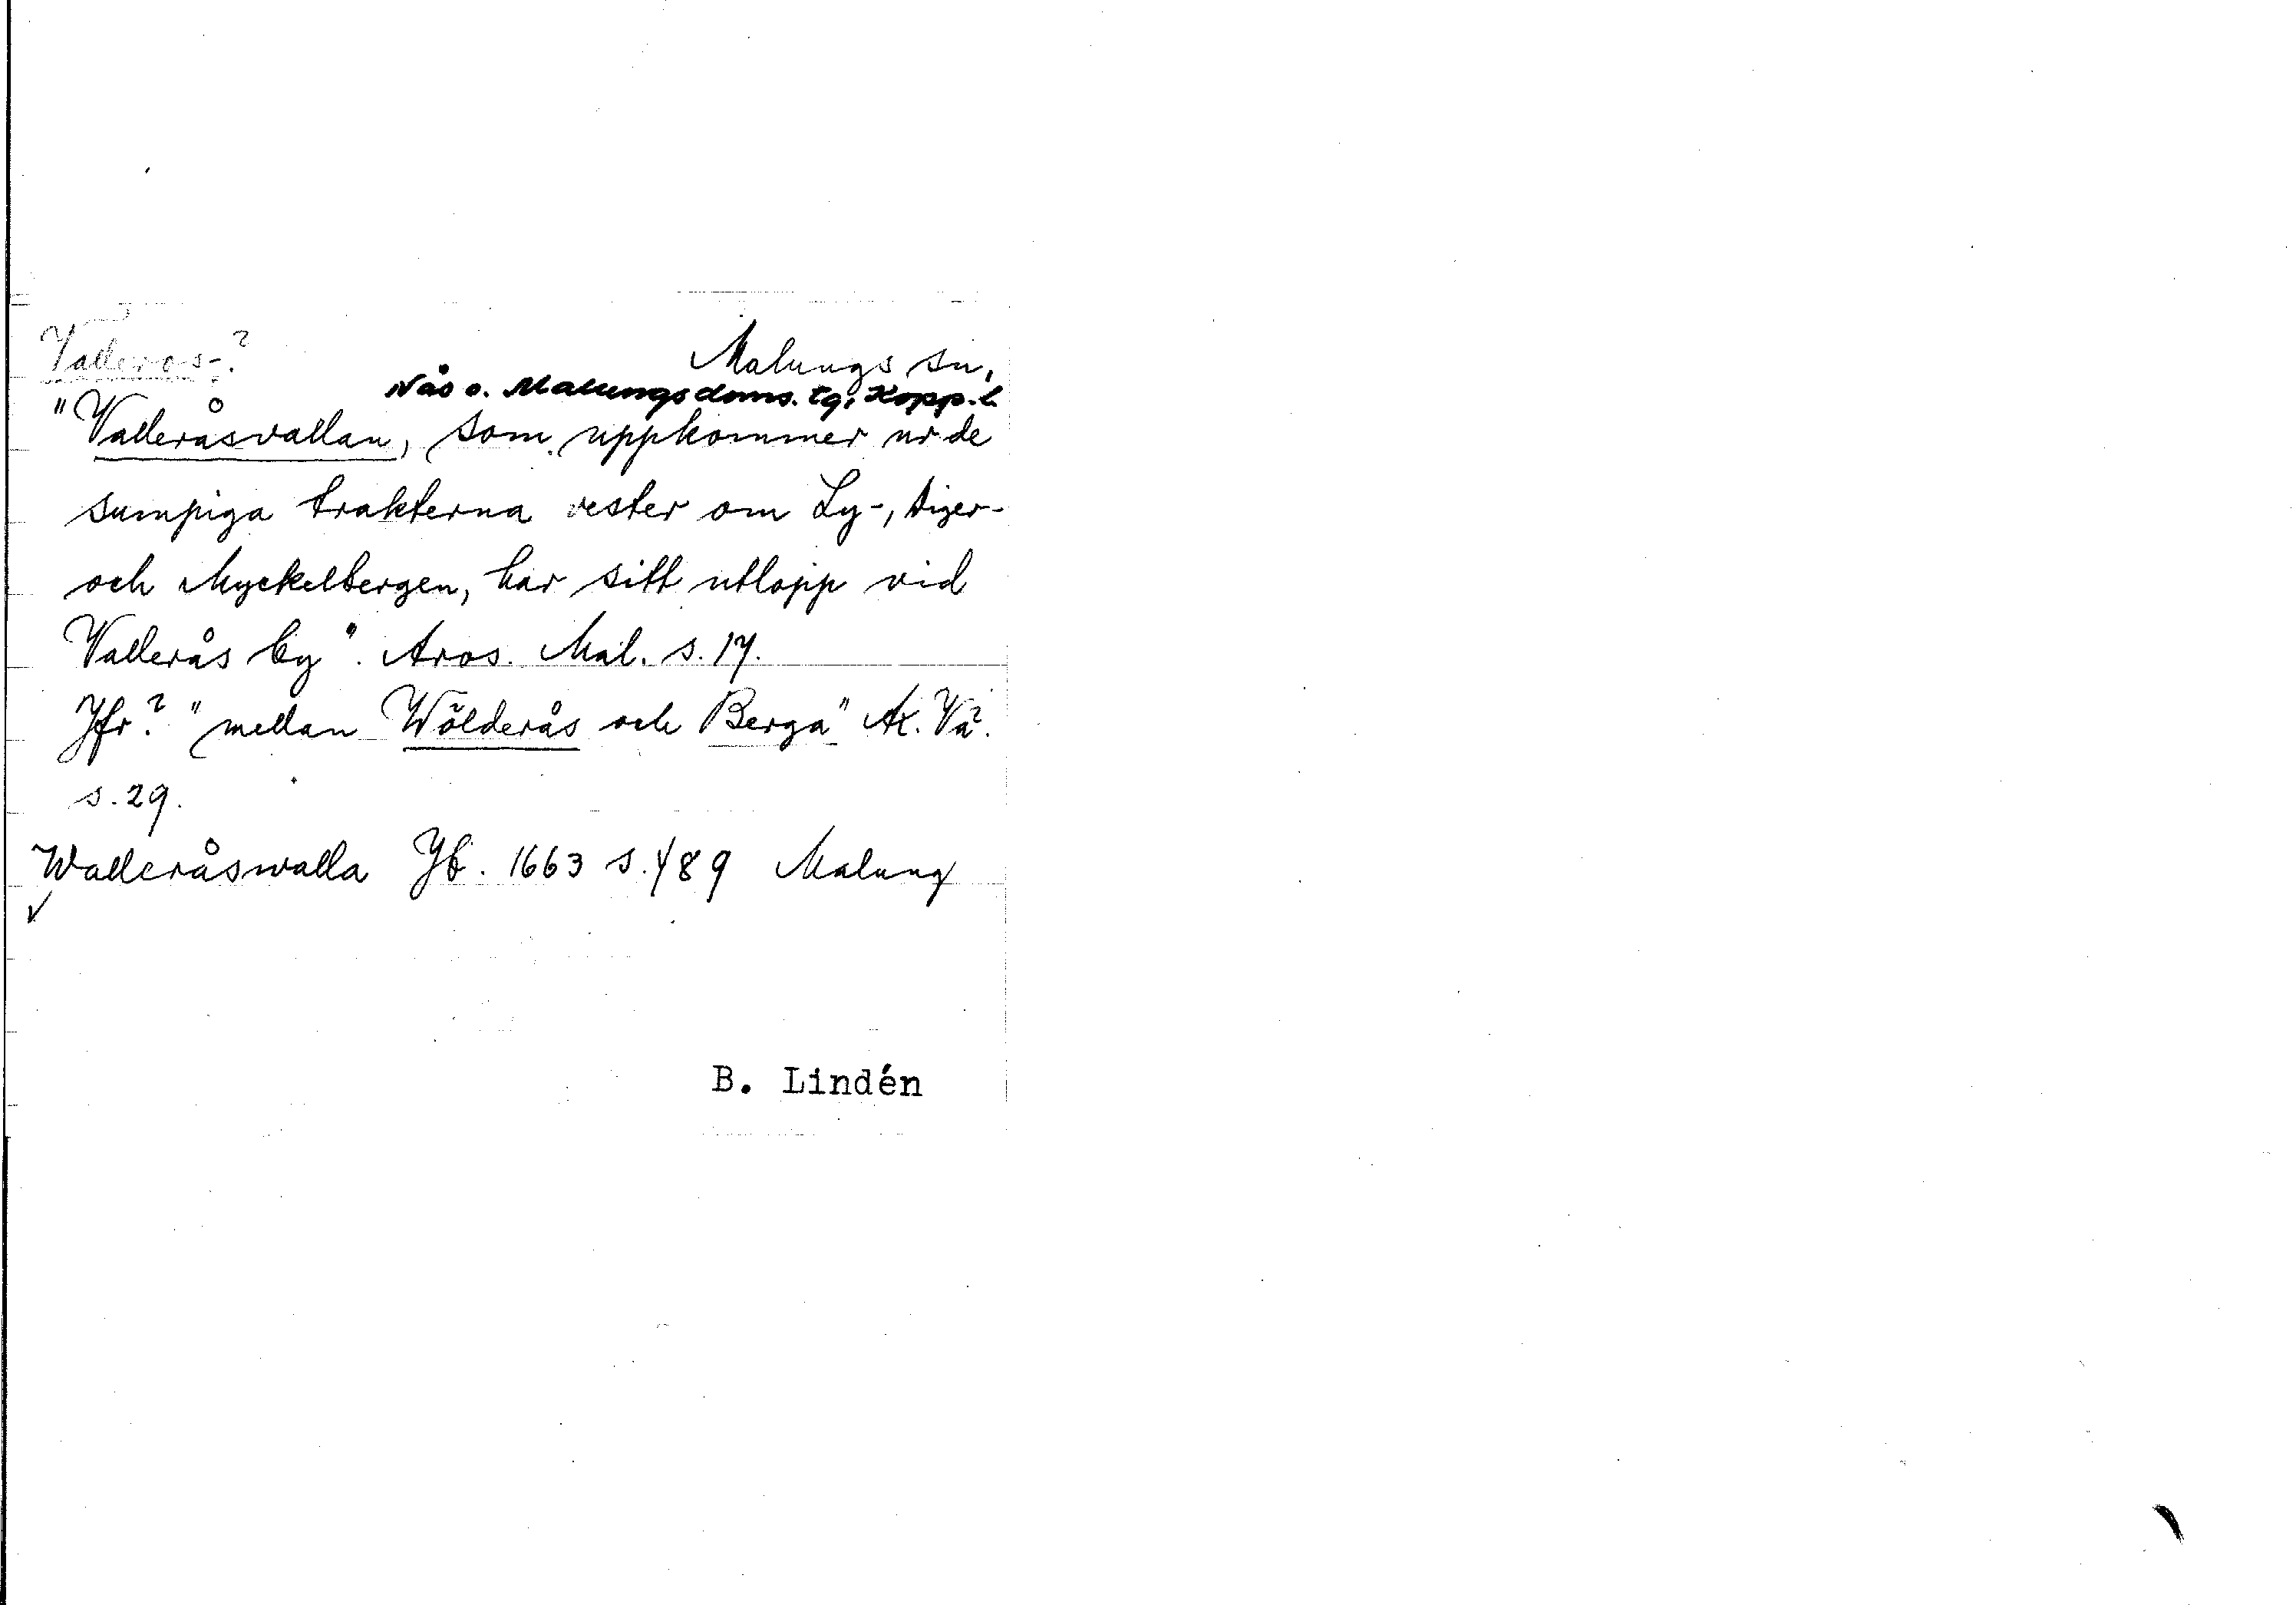 Valleros-?
Malungs sn,
Nås o. Malungs doms. tg, Kopp. l.
"Valleråsvallan, som uppkommer ur de
sumpiga trakterna vester om Ly-, Diger-
och Myckelbergen, har sitt utlopp vid
Vallerås by". Aros. Mal. s. 17.
Jfr? "mellan Wõlderås och Berga" Ak. Vä?
s. 29.
Walleråswalla Jb. 1663 s. 489 Malung
B. Lindén